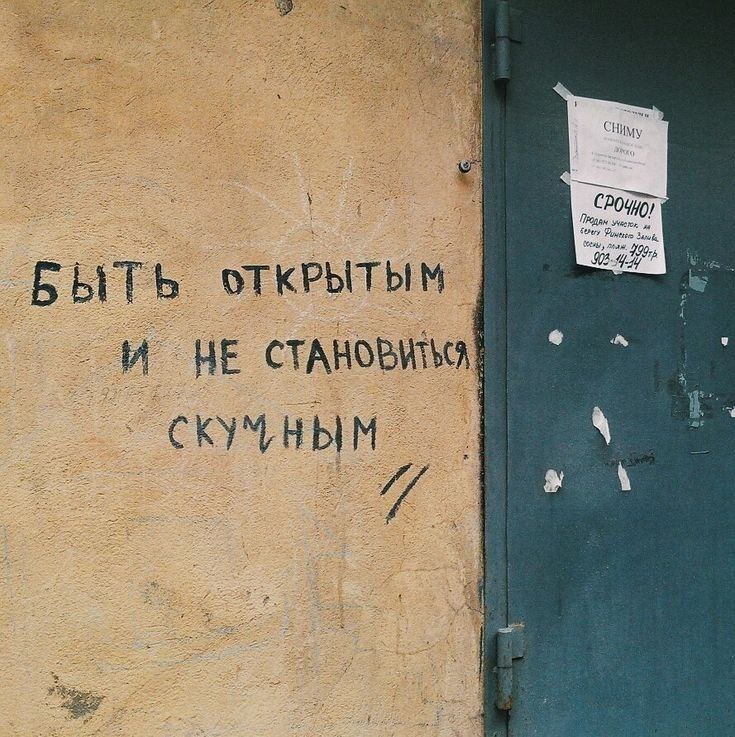 БЫТЬ ОТКРЫТЫМ
И НЕ СТАНОВИТЬСЯ
СКУЧНЫМ
СНИМУ
ДОРОГО
СРОЧНО!
ПРОДАМ УЧАСТОК НА
БЕРЕГУ ФИНСКОГО ЗАЛИВА
СОСНЫ, ПЛЯЖ. 799 т.р.
903-14-14